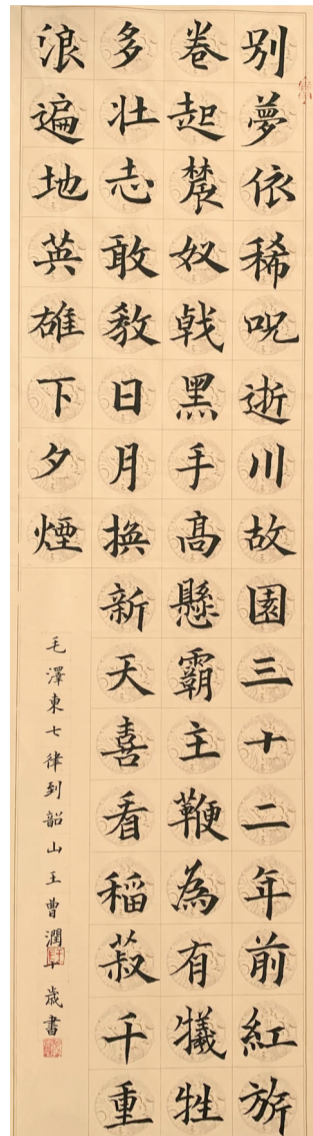 别夢依稀呪逝川故園三十二年前紅旂
卷起農奴戟黑手高懸霸主鞭為有犧牲
多壯志敢教日月換新天喜看稲菽千重
浪遍地英雄下夕煙
毛澤東七律到韶山王曹潤十歲書